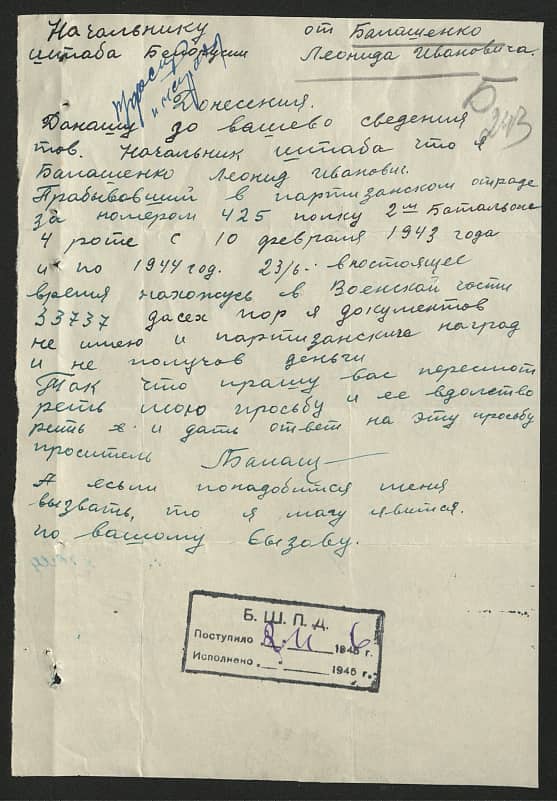 Начальнику от Балашенко
штаба Белорусии Леонида Ивановича.
Донесения.
Б
243
Данашу до вашево сведения
тов. Начальник штаба что я
Балашенко Леонид Иванович.
Прабывавший в партизанском отраде
за номером 425 полку 2м Батальоне
4 роте с 10 февраля 1943 года
и по 1944 год. 23/6. впостоящее
время нахожусь в Военской части
33737 дасех пор я документов
не имею и партизанскига наград
и не получав деньги
Так что прашу вас пересмот
реть мою просьбу и ее вдолство
реть и дать ответ на эту просьбу
проситель Балаш
А если понадобится меня
вызвать, то я магу явится.
по вашому вызову.
Б. Ш. П. Д.
Поступило 2 11 1946 г.
Исполнено 1945 г.